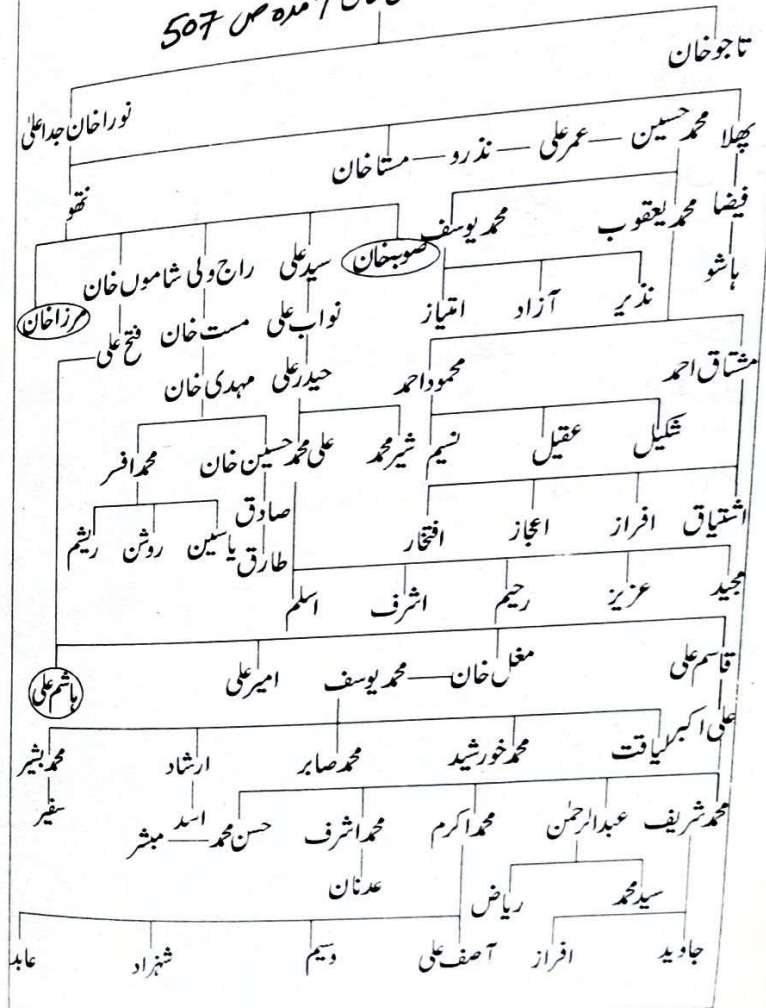 آمدہ ص 507
تاجو خان
نورا خان جد اعلیٰ
پھلا محمد حسین — عمر علی — نذرو — مستا خان
نتھو
فیضا محمد یعقوب محمد یوسف
ہاشو
صوبہ خان سید علی راج ولی شاموں خان مرزا خان
نذیر آزاد امتیاز
نواب علی مست خان فتح علی
مشتاق احمد محمود احمد حیدر علی مہدی خان
شکیل عقیل نسیم شیر محمد علی محمد حسین خان محمد افسر
اشتیاق افراز اعجاز افتخار صادق
طارق یاسین روشن ریشم
مجید عزیز رحیم اشرف اسلم
قاسم علی مغل خان — محمد یوسف امیر علی ہاشم علی
علی اکبر لیاقت محمد خورشید محمد صابر ارشاد محمد بشیر
محمد شریف عبدالرحمٰن محمد اکرم محمد اشرف حسن محمد — مبشر اسد سفیر
سید محمد ریاض عدنان
جاوید افراز آصف علی وسیم شہزاد عابد